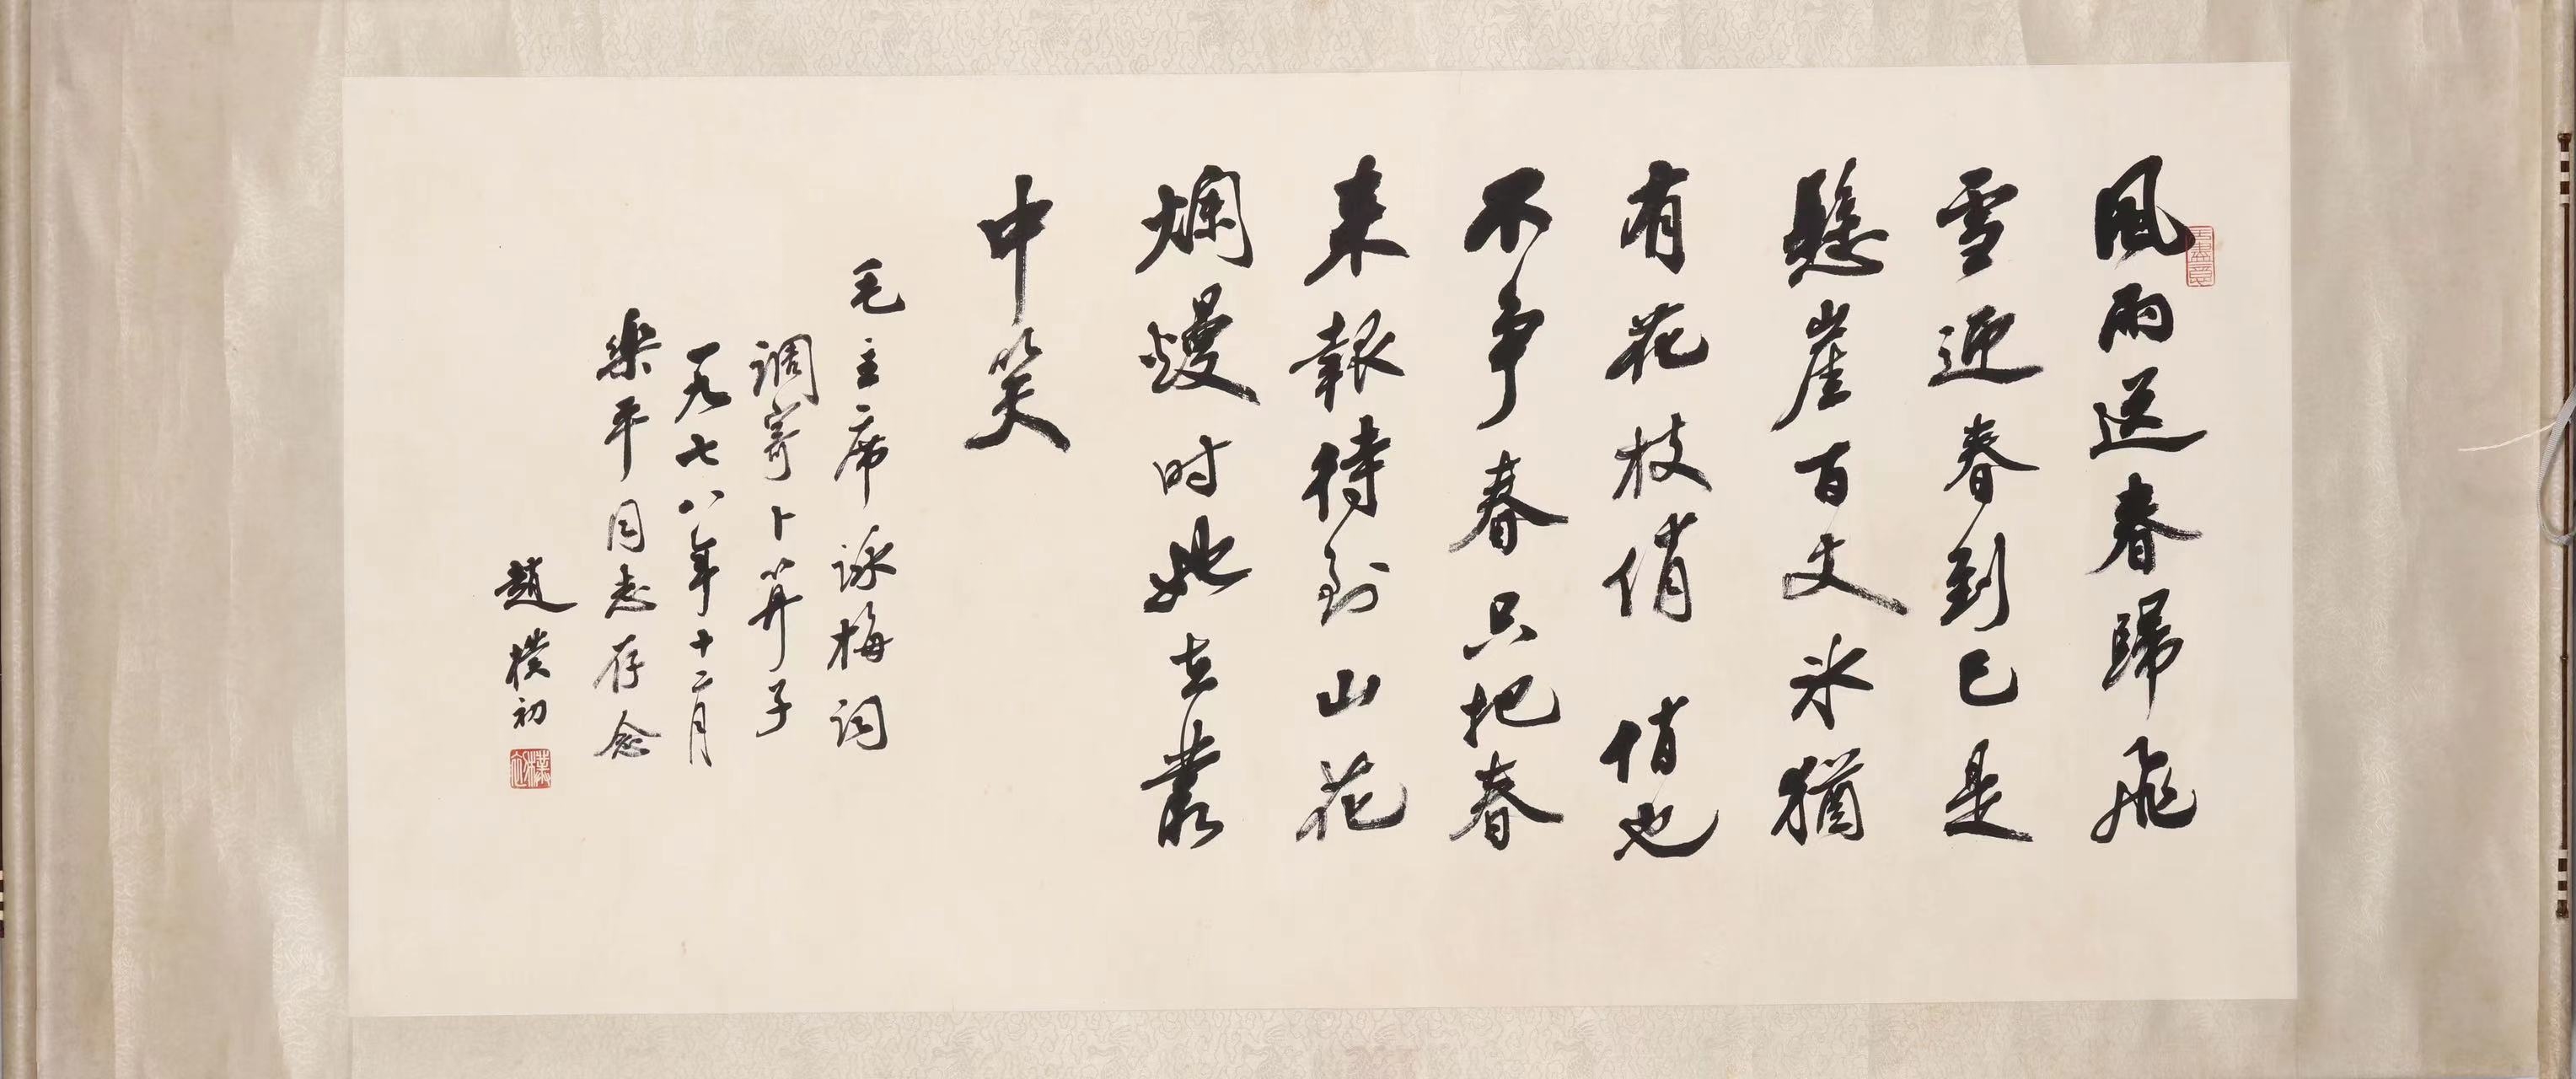 風雨送春歸飛
雪迎春到已是
懸崖百丈冰猶
有花枝俏俏也
不争春只把春
来報待到山花
爛熳时她在叢
中笑
毛主席詠梅词
調寄卜算子
一九七八年十二月
樂平同志存念
趙樸初